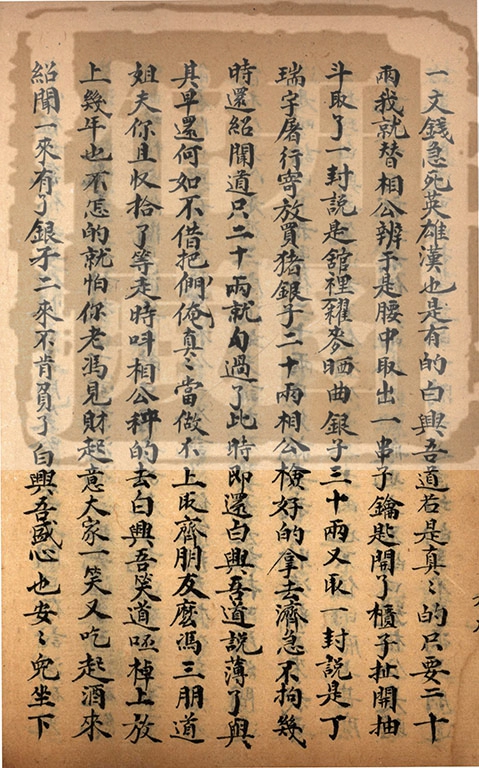 一文錢急死英雄漢也是有的白興吾道若是真〻的只要二十
兩我就替相公辨于是腰中取出一串子鑰匙開了櫃子扯開抽
斗取了一封説是舘裡糴麥晒曲銀子三十兩又取一封説是丁
瑞宇屠行寄放買猪銀子二十兩相公檢好的拿去濟急不拘幾
時還紹聞道只二十兩就勾過了此時即還白興吾道説薄了與
其早還何如不借把們俺真〻當做不上㫁齊朋友麽馮三朋道
姐夫你且收拾了等走時呌相公秤的去白興吾笑道呸棹上放
上幾年也不怎的就怕你老馮見財起意大家一笑又吃起酒來
紹聞一來有了銀子二來不肯負了白興吾感心也安〻兒坐下